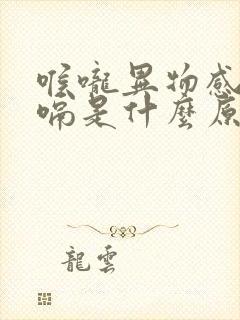 喉嚨異物感
嗝是什麼原
龍雲